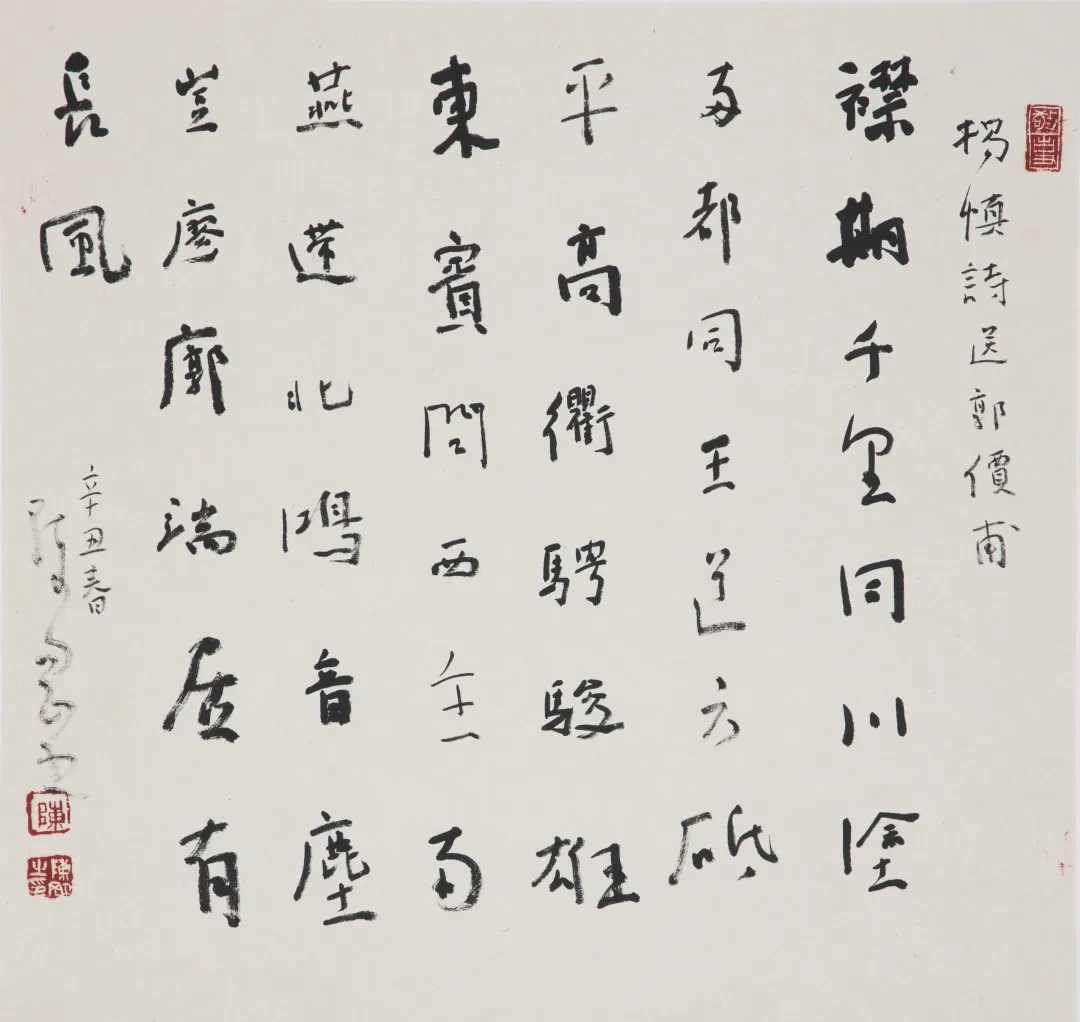 楊慎詩送郭價甫
襟期千里同川塗
兩都同王道方砥
平高衢騁駿雄
東賓問西主南
燕遰北鴻音塵
豈廖廓端居有
長風
辛丑春
陳